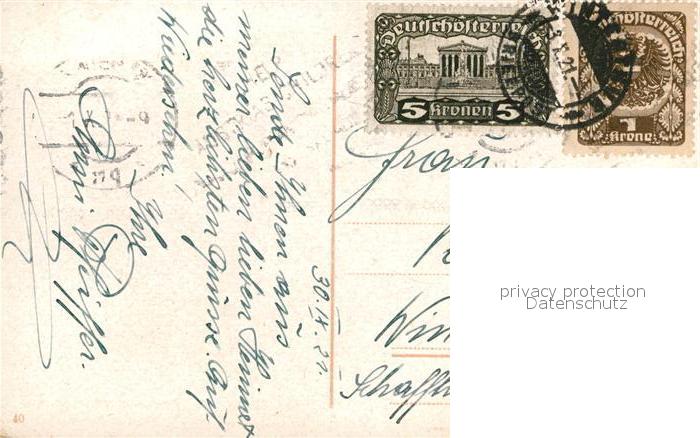 Deutschösterreich
5 Kronen 5
Deutschösterreich
1
Krone
30. IX. 21.
Sende Ihnen aus
meiner lieben lieben Heimat
die herzlichsten Grüsse. Auf
Wiedersehen,
Ihre
Pfeiffer.
Frau
Schaffh
privacy protection
Datenschutz
40